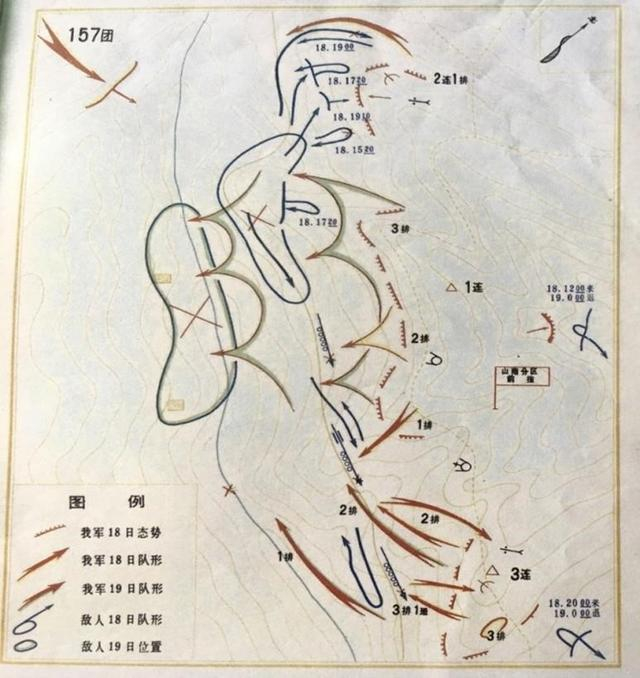 157团
18.1900
18.1720
2连1排
18.1910
18.1520
18.1720
3排
1连
18.1200来
19.000退
2排
山南分区
前指
1排
2排
2排
1排
3连
3排1班
18.2000来
19.000退
3排
图例
我军18日态势
我军18日队形
我军19日队形
敌人18日队形
敌人19日位置